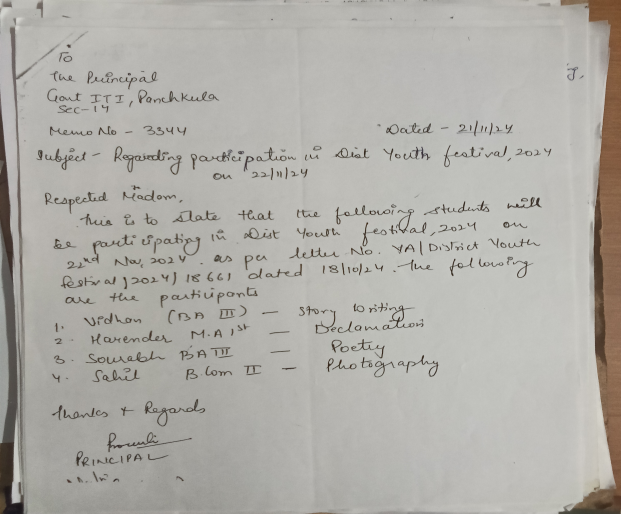 To
The Principal
Govt ITI, Panchkula
Sec-14
Memo No - 3344 Dated - 21/11/24
Subject - Regarding participation in Dist Youth festival, 2024
on 22/11/24
Respected Madam,
This is to state that the following students will
be participating in Dist Youth festival, 2024 on
22nd Nov, 2024. as per letter No. YA/District Youth
festival/2024/18661 dated 18/10/24. The following
are the participants
1. Vidhan (BA III) - Story Writing
2. Harender M.A 1st - Declamation
3. Sourabh BA III - Poetry
4. Sahil B.Com II - Photography
Thanks & Regards
PRINCIPAL